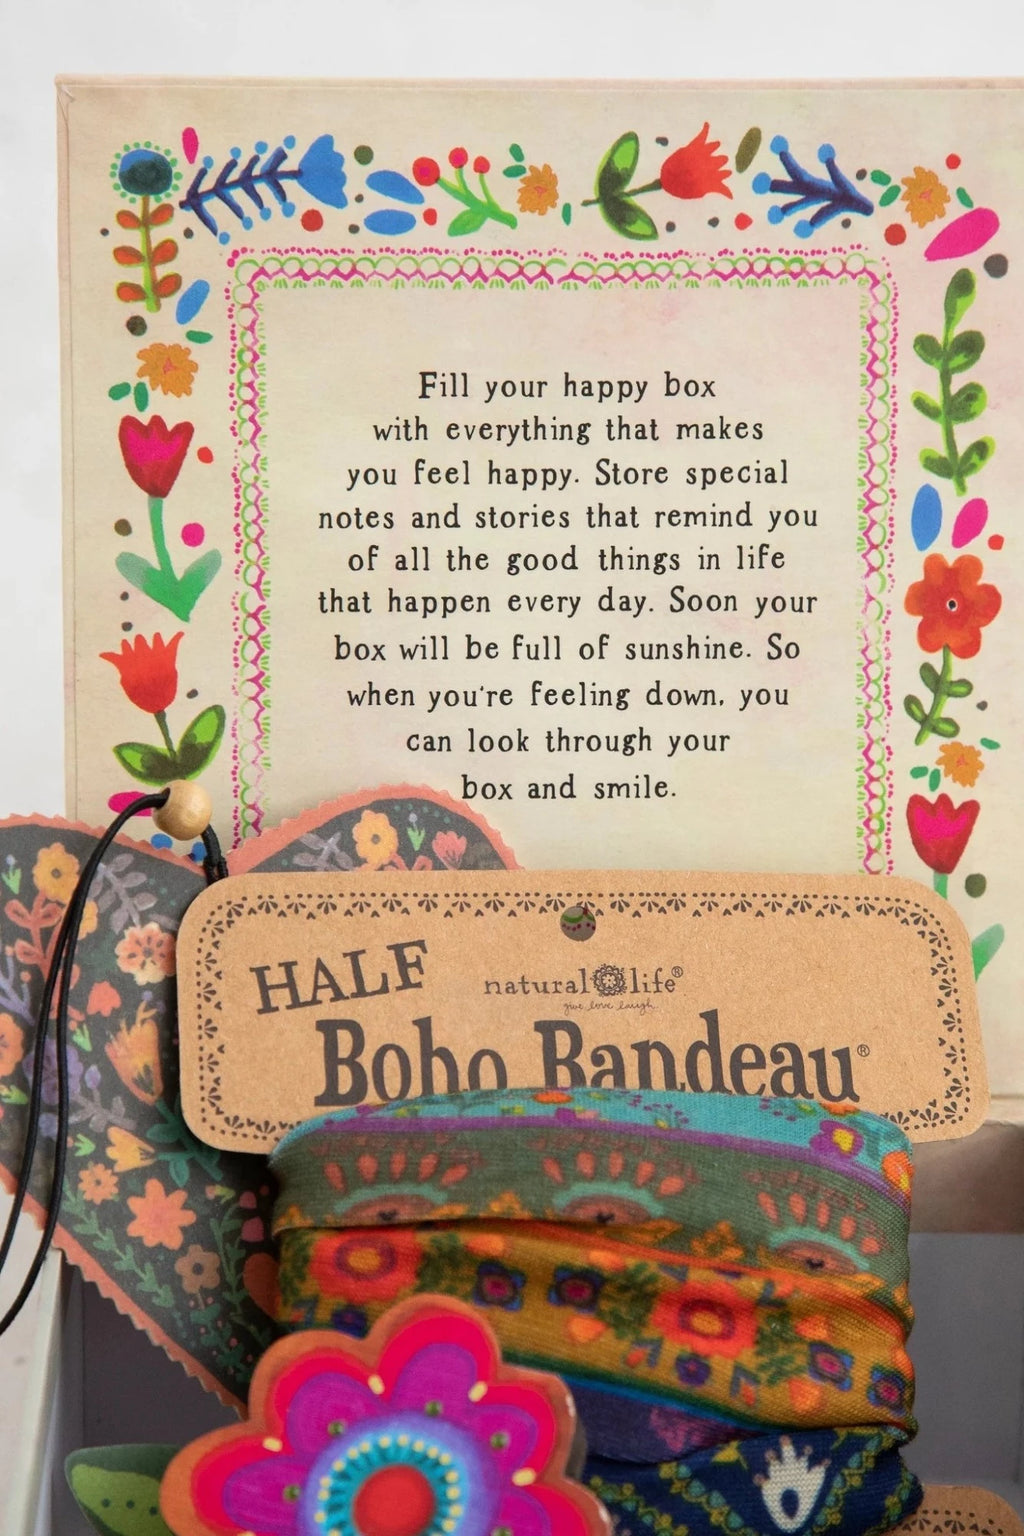 Fill your happy box
with everything that makes
you feel happy. Store special
notes and stories that remind you
of all the good things in life
that happen every day. Soon your
box will be full of sunshine. So
when you're feeling down, you
can look through your
box and smile.
HALF
natural life®
give love laugh
Boho Bandeau®